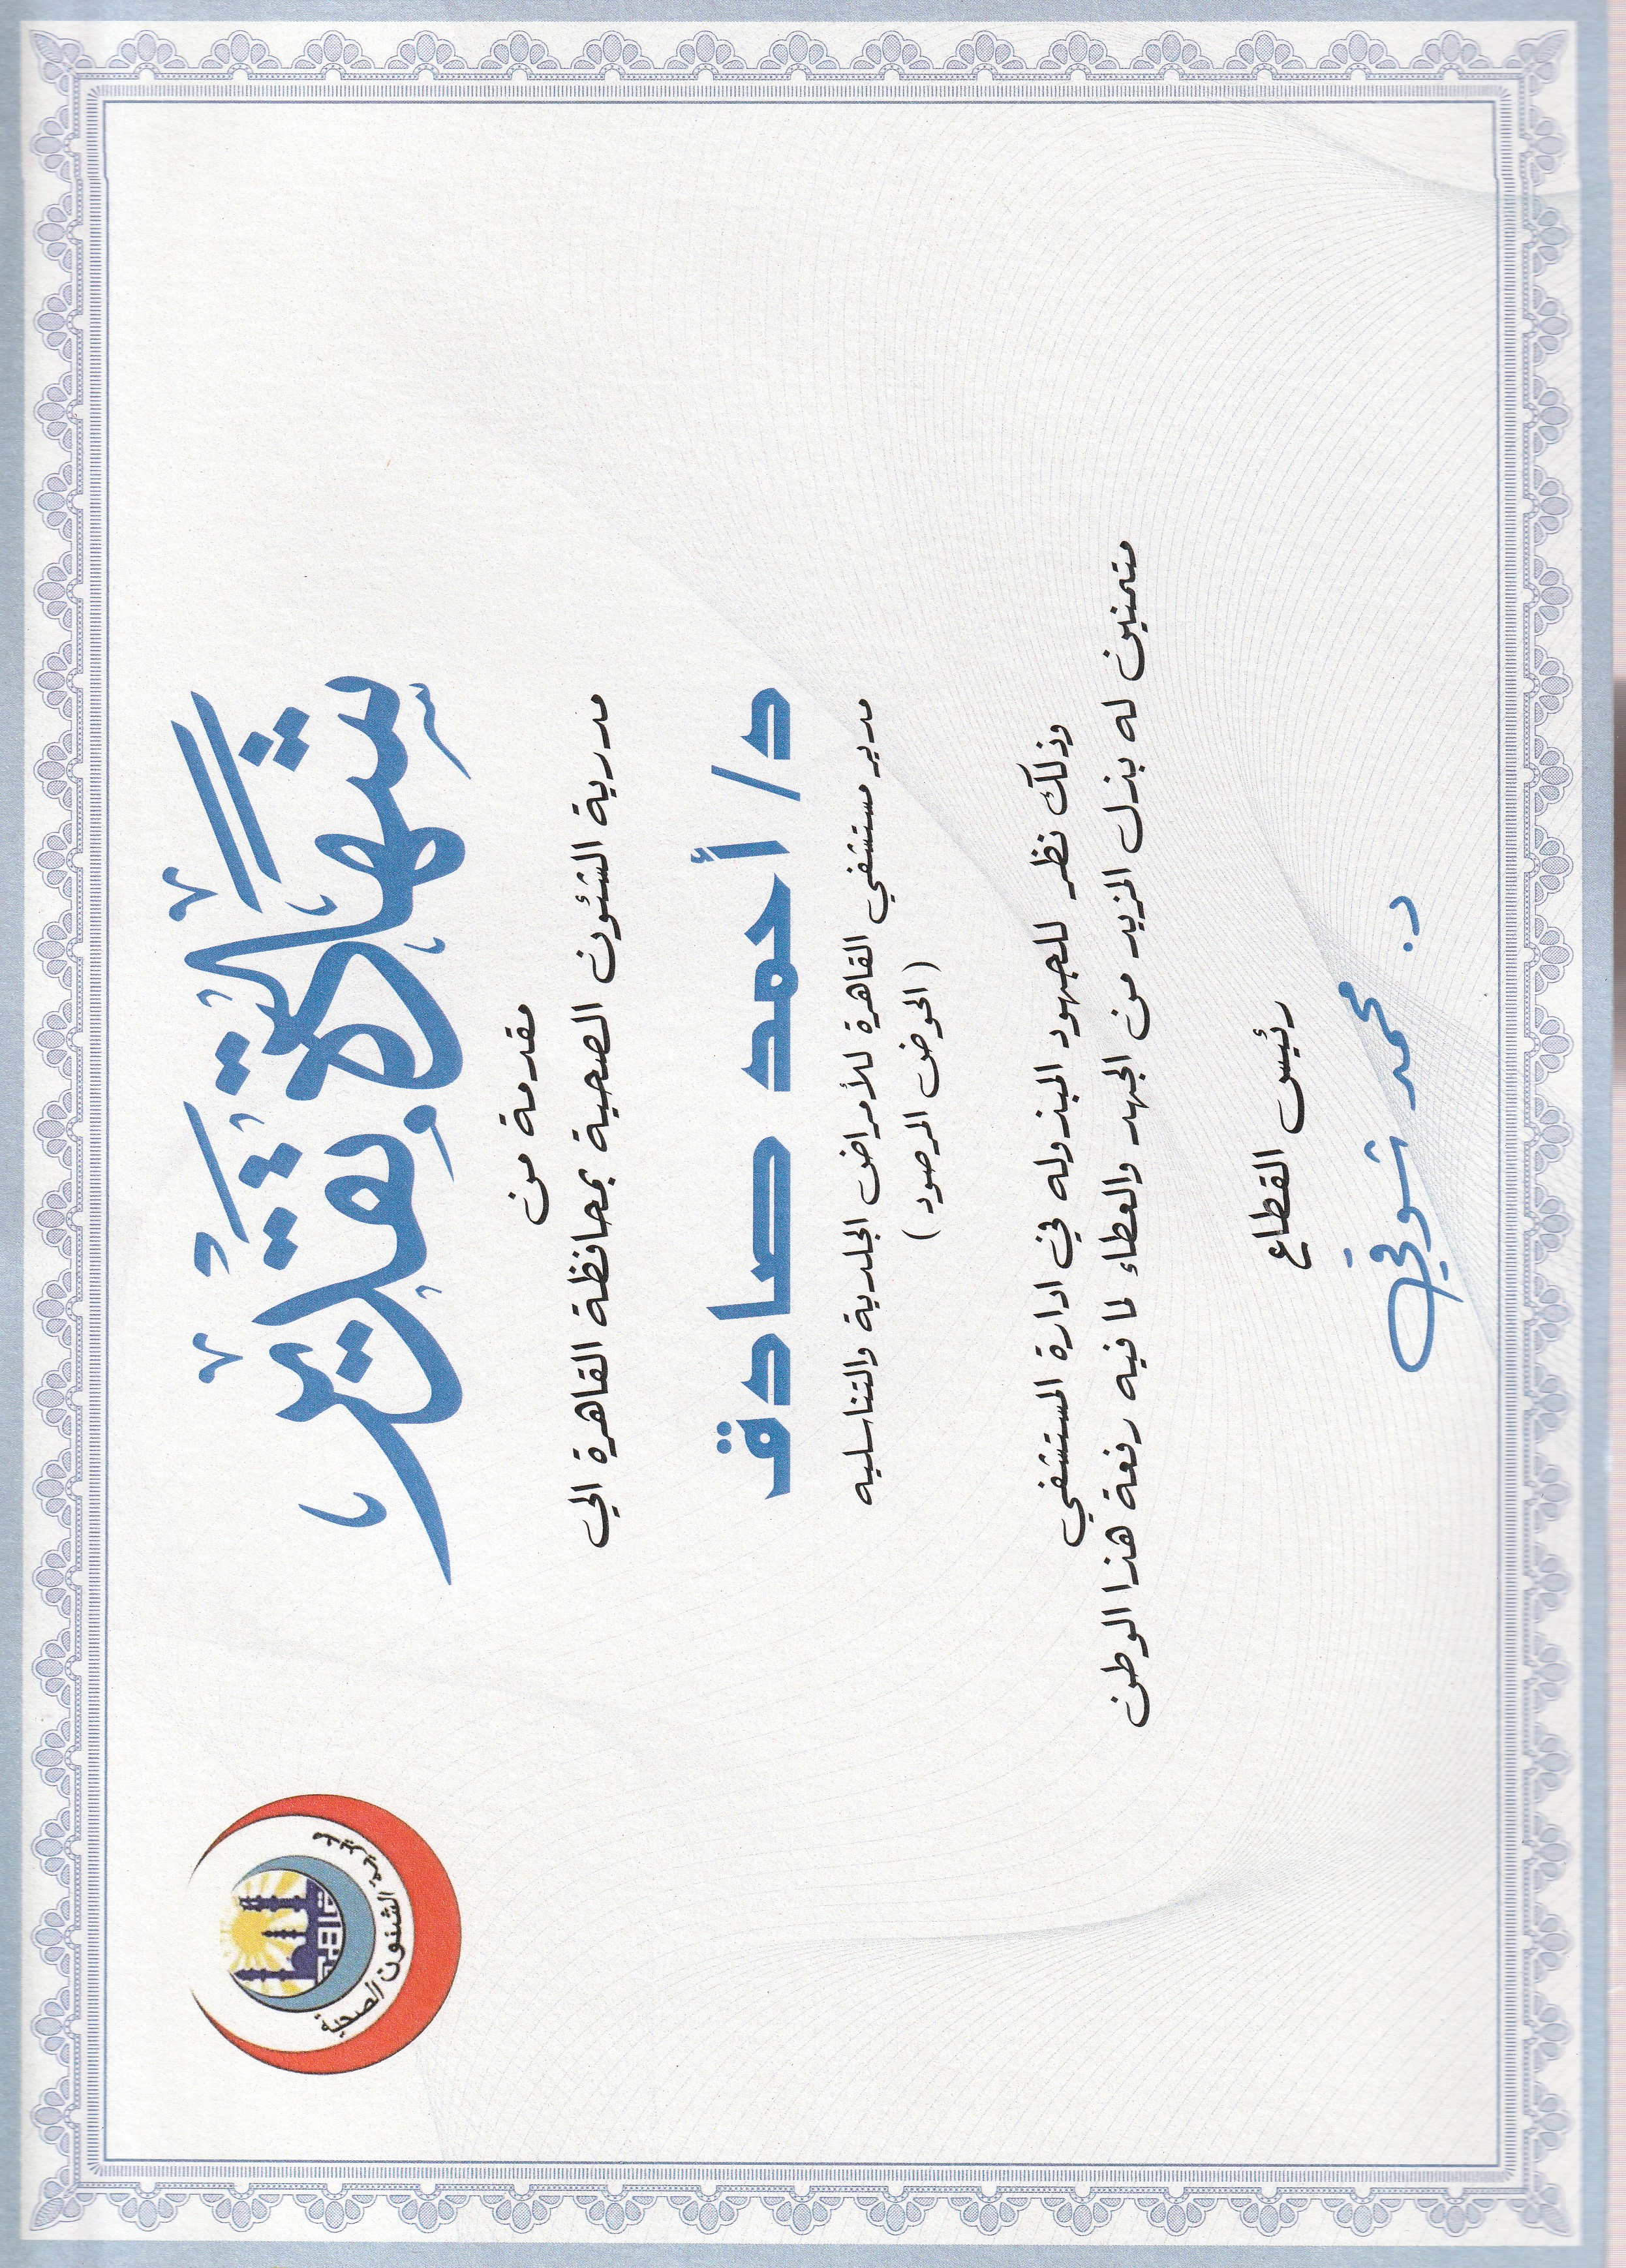 شهادة تقدير
قاهرة
مديرية الشئون الصحية
مقدمة من
مدرية الشئون الصحية بمحافظة القاهرة الي
د/ أحمد صادق
مدير مستشفي القاهرة للأمراض الجلدية والتناسليه
( الحوض المرصود )
وذلك نظر للجهود المبذوله في ادارة المستشفي
متمنين له بذل المزيد من الجهد والعطاء لما فيه رفعة هذا الوطن
رئيس القطاع
د. محمد شوقي